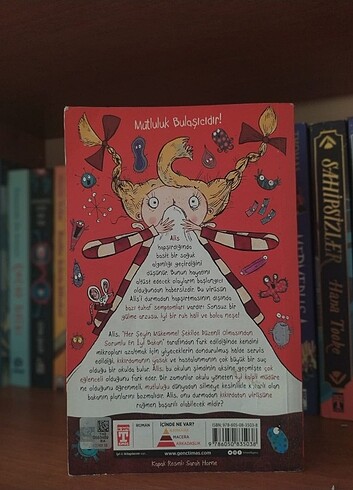 Mutluluk Bulaşıcıdır!
Alis
hapşırdığında
basit bir soğuk
algınlığı geçirdiğini
düşünür. Bunun hayatını
altüst edecek olayların başlangıcı
olduğundan habersizdir. Bu virüsün
Alis'i durmadan hapşırtmasının dışında
bazı tuhaf semptomları vardır: Sonsuz bir
gülme arzusu, iyi bir ruh hali ve bolca neşe!
Alis, "Her Şeyin Mükemmel Şekilde Düzenli Olmasından
Sorumlu En İyi Bakan" tarafından fark edildiğinde kendini
mikropları azaltmak için yiyeceklerin dondurulmuş hâlde servis
edildiği, kıkırdamanın yasak ve hastalanmanın çok büyük bir suç
olduğu bir okulda bulur. Alis, bu okulun şimdinin aksine geçmişte çok
eğlenceli olduğunu fark eder. Bir zamanlar okulu yöneten iyi kalpli müdüre
ne olduğunu öğrenmeli, mutluluğu dünyadan silmeye kesinlikle kararlı olan
bakanın planlarını bozmalıdır. Alis, onu durmadan kıkırdatan virüsüne
rağmen başarılı olabilecek midir?
ROMAN
İÇİNDE NE VAR?
MACERA
www.genctimas.com
Kapak Resmi: Sarah Horne
SAHİPSİZLER
Hakan